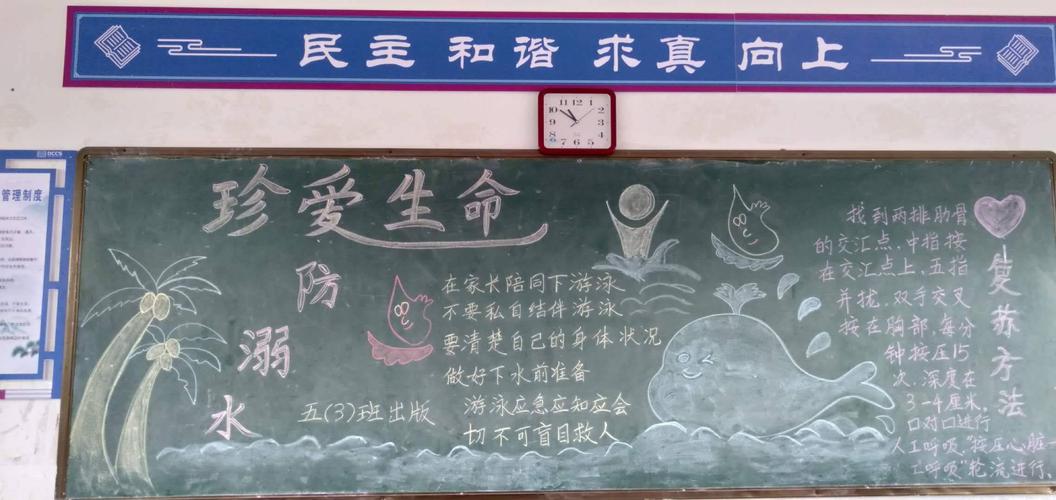 民主 和谐 求真 向上
DCCS
管理制度
11 12 1
10 2
9 3
8 4
7 6 5
珍爱生命
防溺水
在家长陪同下游泳
不要私自结伴游泳
要清楚自己的身体状况
做好下水前准备
游泳应急应知应会
切不可盲目救人
五(3)班出版
复苏方法
找到两排肋骨
的交汇点,中指按
在交汇点上,五指
并拢,双手交叉
按在胸部,每分
钟按压15
次,深度在
3-4厘米,
口对口进行
人工呼吸,"按压心脏
工呼吸"轮流进行、